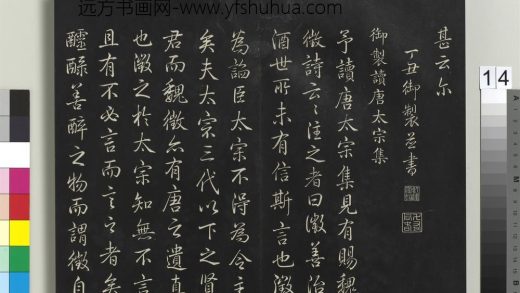 远方书画网-www.yfshuhua.com
甚云尔
丁丑御製並書
御製讀唐太宗集
予讀唐太宗集見有賜魏
徵詩云云注之者曰徵善治
酒世所未有信斯言也徵
為諂臣太宗不得為令主
矣夫太宗三代以下之賢
君而魏徵亦有唐之遺直
也徵之於太宗知無不言
且有不必言而言之者矣
醽醁善醉之物而謂徵自
14